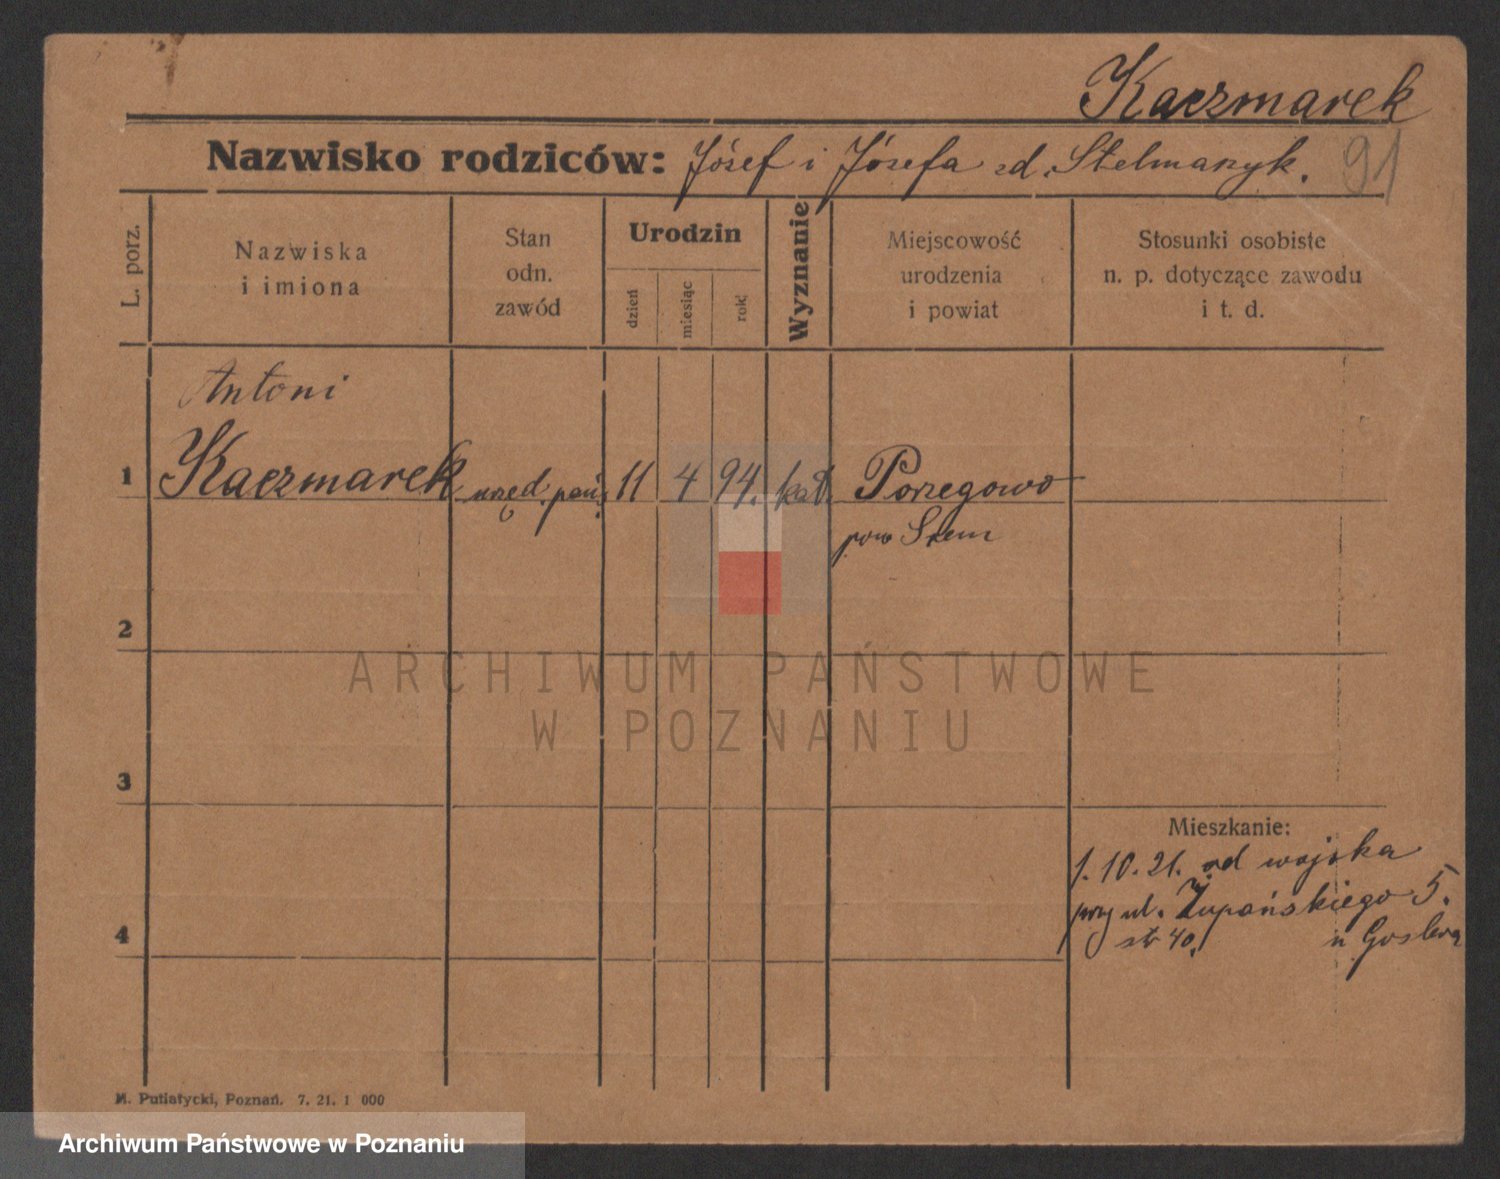 Kaczmarek
Nazwisko rodziców: Józef i Józefa zd. Stelmaszyk. 91
L. porz.
Nazwiska
i imiona
Stan
odn.
zawód
Urodzin
dzień
miesiąc
rok
Wyznanie
Miejscowość
urodzenia
i powiat
Stosunki osobiste
n. p. dotyczące zawodu
i t. d.
Antoni
1 Kaczmarek urzęd. pań. 11 4 94. kat. Porzegowo
pow Śrem
2
3
4
ARCHIWUM PAŃSTWOWE
W POZNANIU
Mieszkanie:
1. 10. 21. od wojska
przy ul. Żupańskiego 5.
str 40. u
M. Putiatycki, Poznań. 7. 21. 1 000
Archiwum Państwowe w Poznaniu